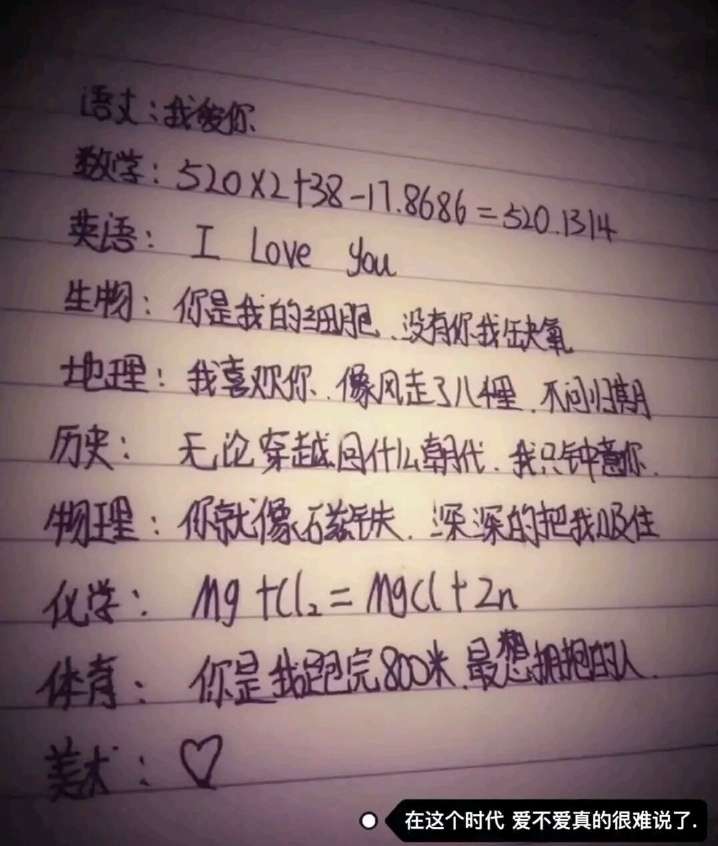 语文:我爱你
数学:520×2+38-17.8686=520.1314
英语:I Love You
生物:你是我的细胞、没有你我会缺氧
地理:我喜欢你.像风走了八千里.不问归期
历史:无论穿越回什么朝代.我只钟意你.
物理:你就像石磁铁.深深的把我吸住
化学:Mg+Cl₂=MgCl+2n
体育:你是我跑完800米.最想拥抱的人.
美术:♡
在这个时代 爱不爱真的很难说了.